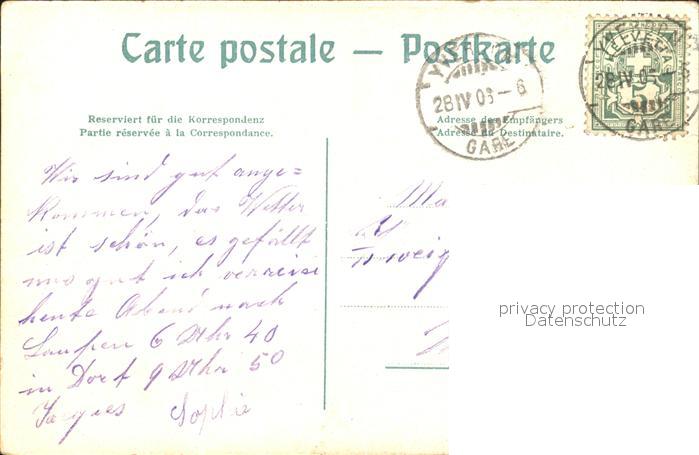 Carte postale — Postkarte
Reserviert für die Korrespondenz
Partie réservée à la Correspondance.
Adresse des Empfängers
Adresse du Destinataire.
28 IV 05 — 6
GARE
HELVETIA
5
28 IV 05 — 6
GARE
Wir sind gut ange=
kommen, das Wetter
ist schön, es gefällt
uns gut ich verreise
heute Abend nach
Laupen 6 Uhr 40
in Dorf 9 Uhr 50
Jacques Sophie
Ma
privacy protection
Datenschutz